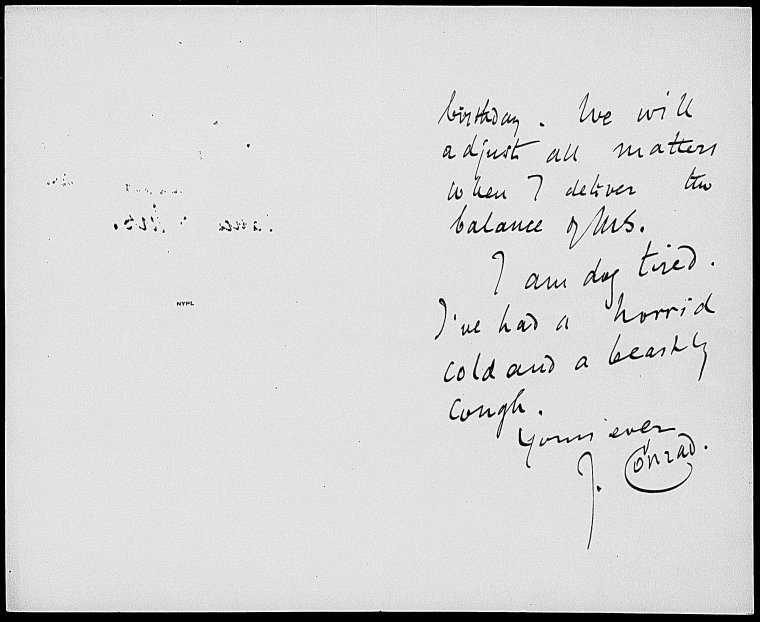 NYPL
birthday. We will
adjust all matters
when I deliver the
balance of MS.
I am dog tired.
I've had a horrid
cold and a beastly
cough.
Yours ever
J. Conrad.